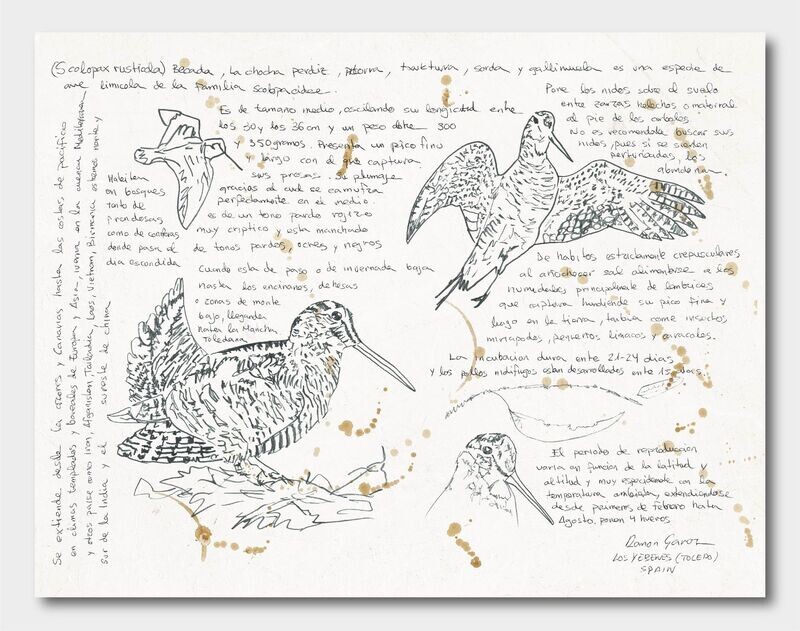 (Scolopax rusticola) Becada, la chocha perdiz, pitorra, txuktxura, sorda y gallinuela es una especie de
ave limícola de la familia scolopacidae.
Es de tamaño medio, oscilando su longitud entre
los 30 y los 36 cm y un peso de 300
y 350 gramos. Presenta un pico fino
y largo con el que captura
sus presas. Su plumaje
gracias al cual se camufla
perfectamente en el medio.
es de un tono pardo rojizo
muy criptico y esta manchado
de tonos pardos, ocres y negros
Habitan
en bosques
tanto de
frondosas
como de coniferas
donde pasa el
dia escondida
Cuando esta de paso o de invernada baja
hasta los encinares, dehesas
o zonas de monte
bajo, llegando
hasta la Mancha
Toledana
Pone los nidos sobre el suelo
entre zarzas helechos o matorral
al pie de los arboles.
No es recomendable buscar sus
nidos, pues si se sienten
perturbadas, los
abandonan.
De habitos estrictamente crepusculares
al anochecer sale alimentarse a los
humedales principalmente de lombrices
que captura hundiendo su pico fino y
largo en la tierra, tambien come insectos
miriapodos, pequeños limacos y caracoles.
La incubacion dura entre 21-24 dias
y los pollos nidifugos estan desarrollados entre 15 dias.
El periodo de reproduccion
varia en funcion de la latitud y
altitud y muy especialmente con la
temperatura ambiental, extendiendose
desde primeros de febrero hasta
Agosto. ponen 4 huevos
Ramon Garoz
LOS YEBENES (TOLEDO)
SPAIN
Se extiende desde las azores y Canarias hasta las costas de pacifico
en climas templados y boreales de Europa y Asia, iverna en la cuenca Mediterranea
y otros paises como Iran, Afganistan, Tailandia, Laos, Vietnam, Birmania
sur de la India y el sureste de china